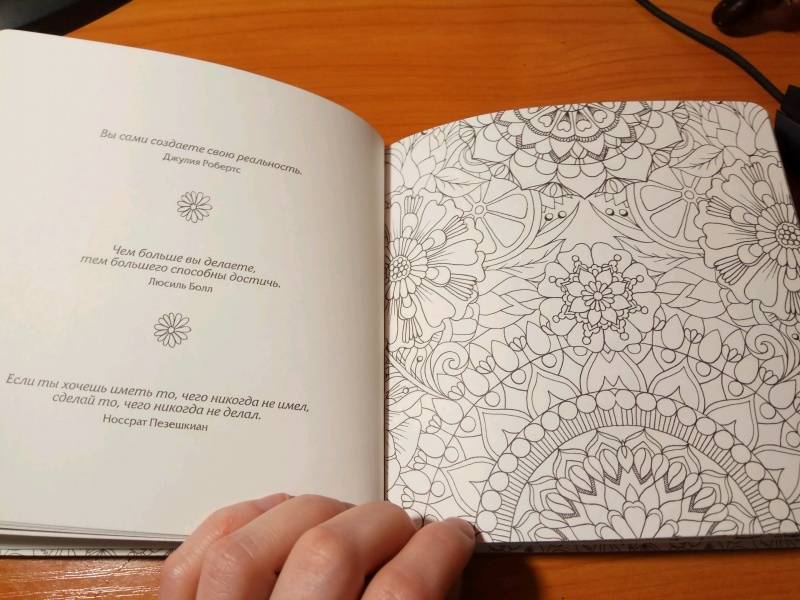 Вы сами создаете свою реальность.
Джулия Робертс
Чем больше вы делаете,
тем большего способны достичь.
Люсиль Болл
Если ты хочешь иметь то, чего никогда не имел,
сделай то, чего никогда не делал.
Носсрат Пезешкиан